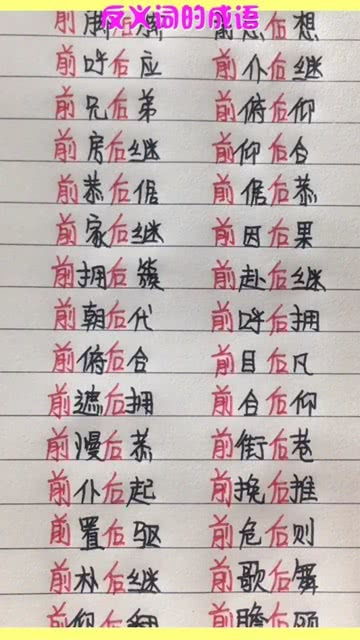 反义词的成语
前脚后脚 前思后想
前呼后应 前仆后继
前兄后弟 前俯后仰
前房后继 前仰后合
前恭后倨 前倨后恭
前家后继 前因后果
前拥后簇 前赴后继
前朝后代 前呼后拥
前俯后合 前目后凡
前遮后拥 前合后仰
前慢后恭 前街后巷
前仆后起 前挽后推
前置后驱 前危后则
前朴后继 前歌后舞
前仰后翻 前瞻后顾